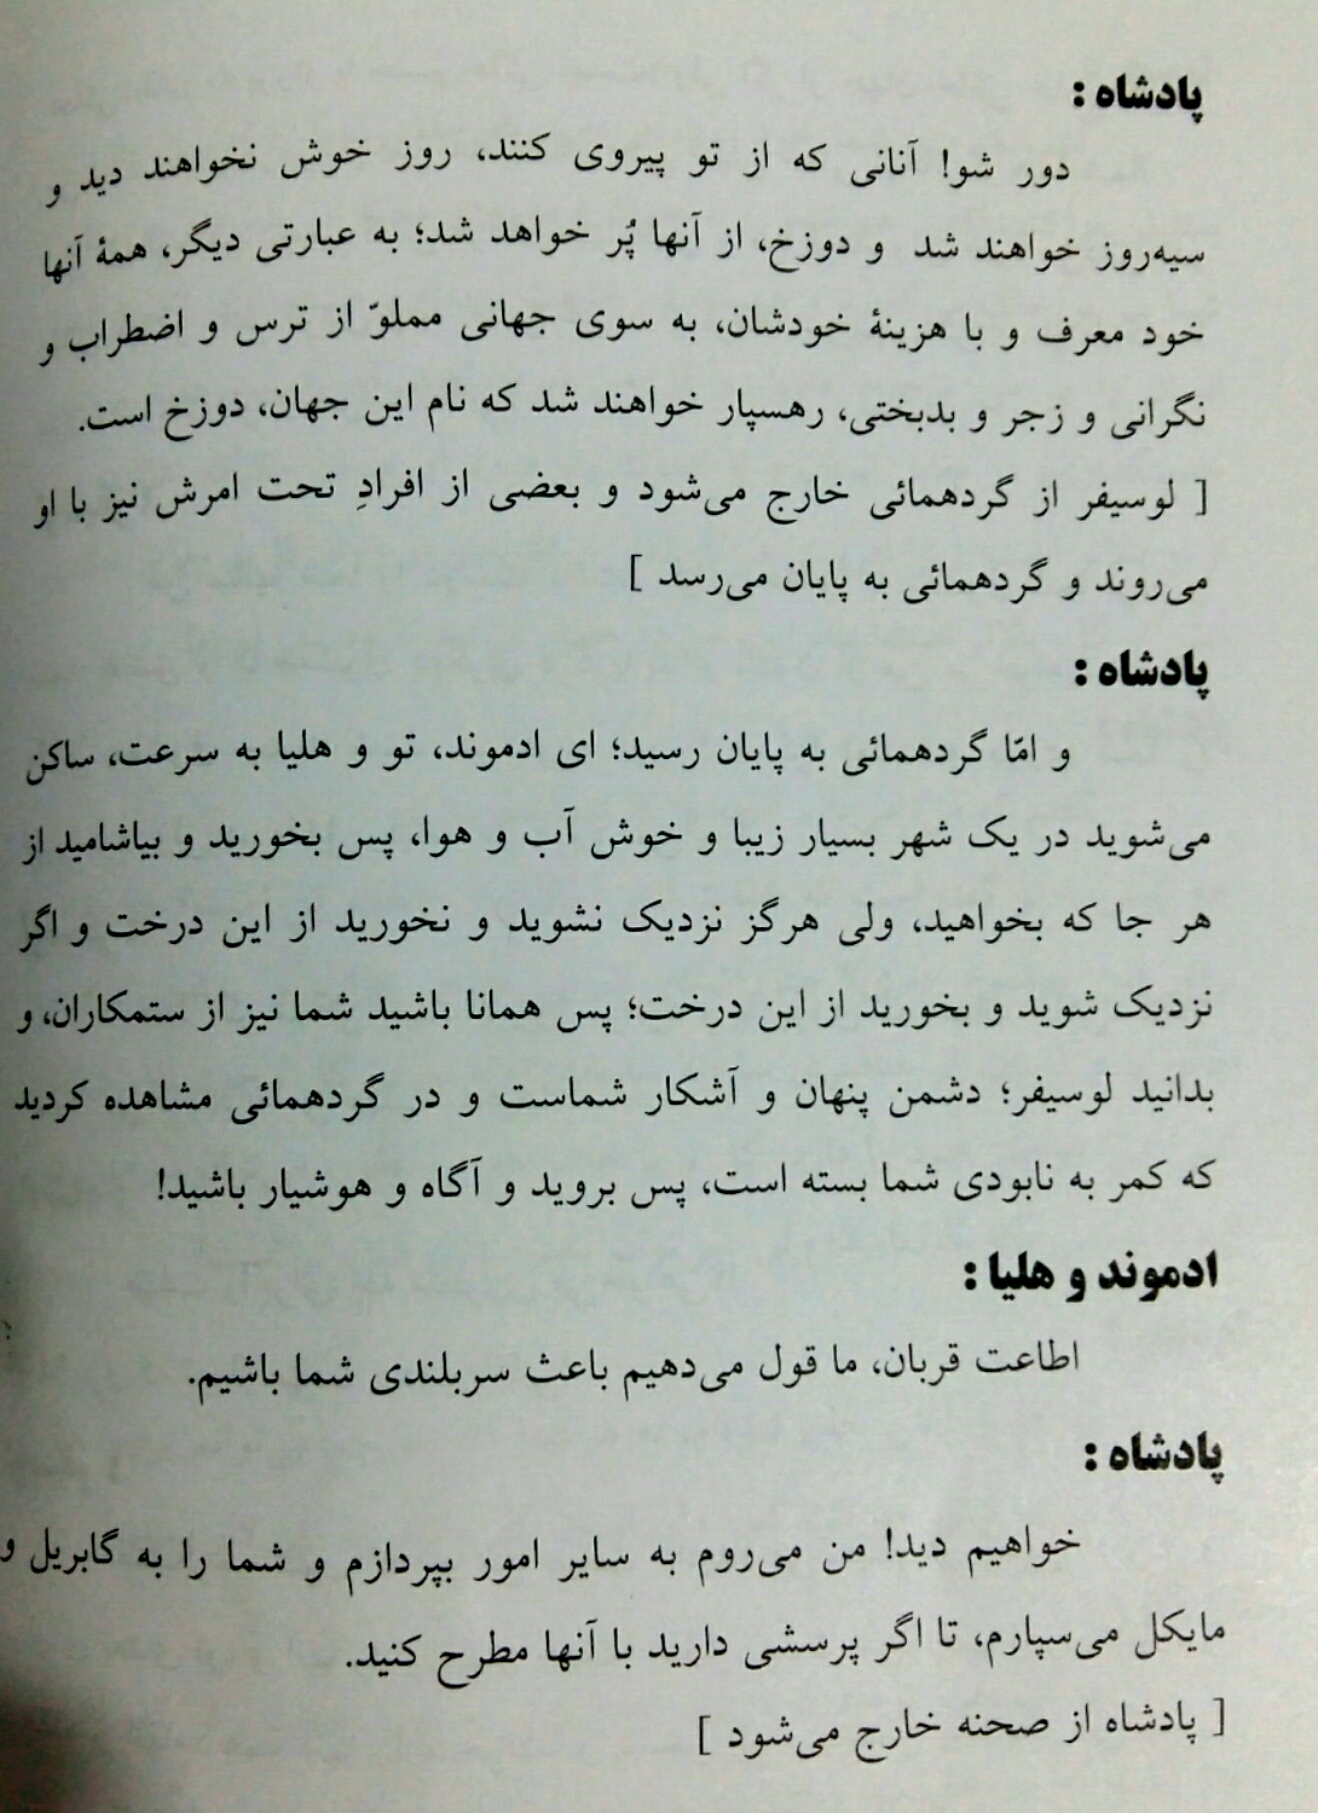 پادشاه :
دور شو! آنانی که از تو پیروی کنند، روز خوش نخواهند دید و
سیه‌روز خواهند شد و دوزخ، از آنها پُر خواهد شد؛ به عبارتی دیگر، همهٔ آنها
خود معرف و با هزینهٔ خودشان، به سوی جهانی مملوّ از ترس و اضطراب و
نگرانی و زجر و بدبختی، رهسپار خواهند شد که نام این جهان، دوزخ است.
[ لوسیفر از گردهمائی خارج می‌شود و بعضی از افرادِ تحت امرش نیز با او
می‌روند و گردهمائی به پایان می‌رسد ]
پادشاه :
و امّا گردهمائی به پایان رسید؛ ای ادموند، تو و هلیا به سرعت، ساکن
می‌شوید در یک شهر بسیار زیبا و خوش آب و هوا، پس بخورید و بیاشامید از
هر جا که بخواهید، ولی هرگز نزدیک نشوید و نخورید از این درخت و اگر
نزدیک شوید و بخورید از این درخت؛ پس همانا باشید شما نیز از ستمکاران، و
بدانید لوسیفر؛ دشمن پنهان و آشکار شماست و در گردهمائی مشاهده کردید
که کمر به نابودی شما بسته است، پس بروید و آگاه و هوشیار باشید!
ادموند و هلیا :
اطاعت قربان، ما قول می‌دهیم باعث سربلندی شما باشیم.
پادشاه :
خواهیم دید! من می‌روم به سایر امور بپردازم و شما را به گابریل و
مایکل می‌سپارم، تا اگر پرسشی دارید با آنها مطرح کنید.
[ پادشاه از صحنه خارج می‌شود ]